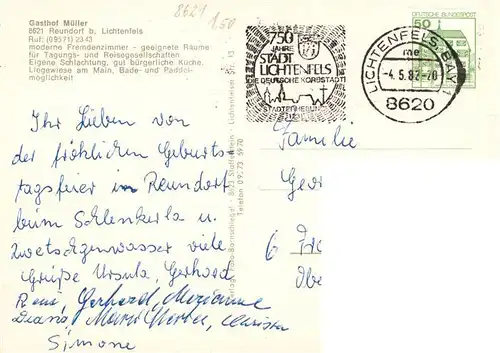 Gasthof Müller
8621 Reundorf b. Lichtenfels
Ruf: (09571) 2343
moderne Fremdenzimmer - geeignete Räume
für Tagungs- und Reisegesellschaften
Eigene Schlachtung, gut bürgerliche Küche.
Liegewiese am Main, Bade- und Paddel-
möglichkeit
8621
1,50
750
JAHRE
STADT
LICHTENFELS
DIE DEUTSCHE KORBSTADT
STADTERHEBUNG
1231
LICHTENFELS, BAY 1
me
-4.5.82-20
8620
DEUTSCHE BUNDESPOST
50
Ihr Lieben von
der fröhlichen Geburts-
tagsfeier im Reundorf
beim Schlenkerla u.
Zwetschgenwasser viele
Grüße Ursula, Gerhard
René, Gerhard, Marianne
Diana, Christa
Simone
Familie
Geor
6 Fr
Obe
8623 Staffelstein · Lichtenfelser Str. 13
Telefon 09573 5970